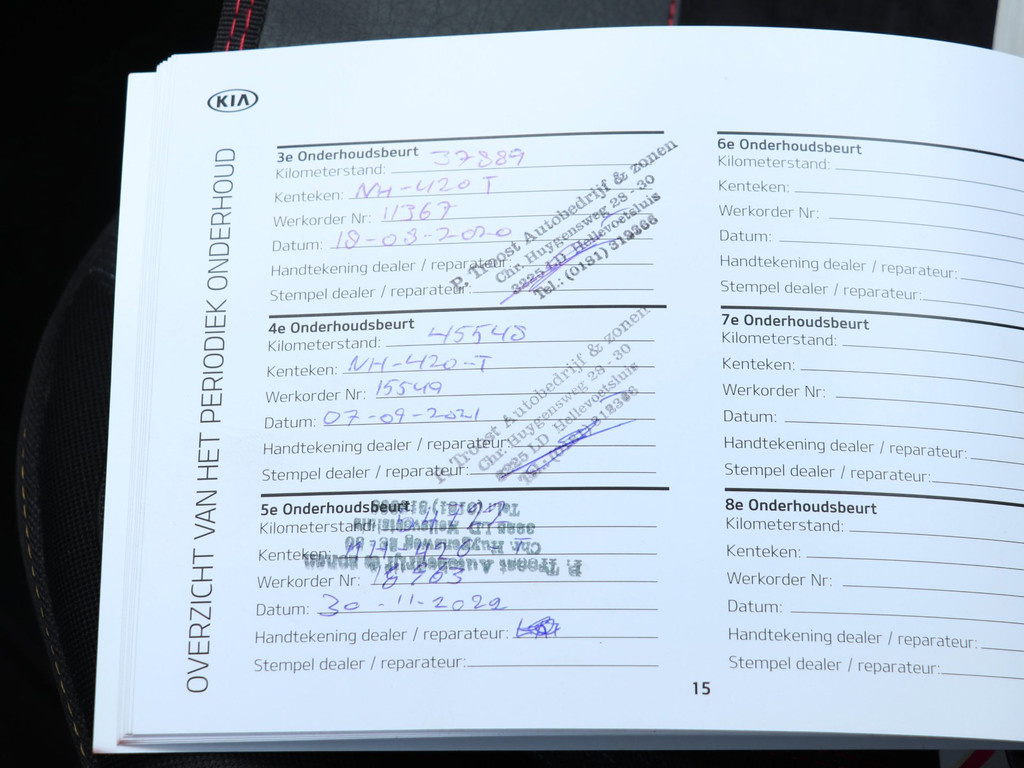 KIA
OVERZICHT VAN HET PERIODIEK ONDERHOUD
3e Onderhoudsbeurt
Kilometerstand: 37889
Kenteken: NH-420 T
Werkorder Nr: 11367
Datum: 18-08-2020
Handtekening dealer / reparateur:
Stempel dealer / reparateur:
P. Troost Autobedrijf & zonen
Chr. Huygensweg 28 - 30
3225 LD Hellevoetsluis
Tel.: (0181) 312366
4e Onderhoudsbeurt
Kilometerstand: 45548
Kenteken: NH-420-T
Werkorder Nr: 15549
Datum: 07-09-2021
Handtekening dealer / reparateur:
Stempel dealer / reparateur:
P. Troost Autobedrijf & zonen
Chr. Huygensweg 28 - 30
3225 LD Hellevoetsluis
Tel.: (0181) 312366
5e Onderhoudsbeurt
Kilometerstand:
Kenteken: NH-420-T
Werkorder Nr: 18203
Datum: 30-11-2022
Handtekening dealer / reparateur:
Stempel dealer / reparateur:
P. Troost Autobedrijf & zonen
Chr. Huygensweg 28 - 30
3225 LD Hellevoetsluis
6e Onderhoudsbeurt
Kilometerstand:
Kenteken:
Werkorder Nr:
Datum:
Handtekening dealer / reparateur:
Stempel dealer / reparateur:
7e Onderhoudsbeurt
Kilometerstand:
Kenteken:
Werkorder Nr:
Datum:
Handtekening dealer / reparateur:
Stempel dealer / reparateur:
8e Onderhoudsbeurt
Kilometerstand:
Kenteken:
Werkorder Nr:
Datum:
Handtekening dealer / reparateur:
Stempel dealer / reparateur:
15